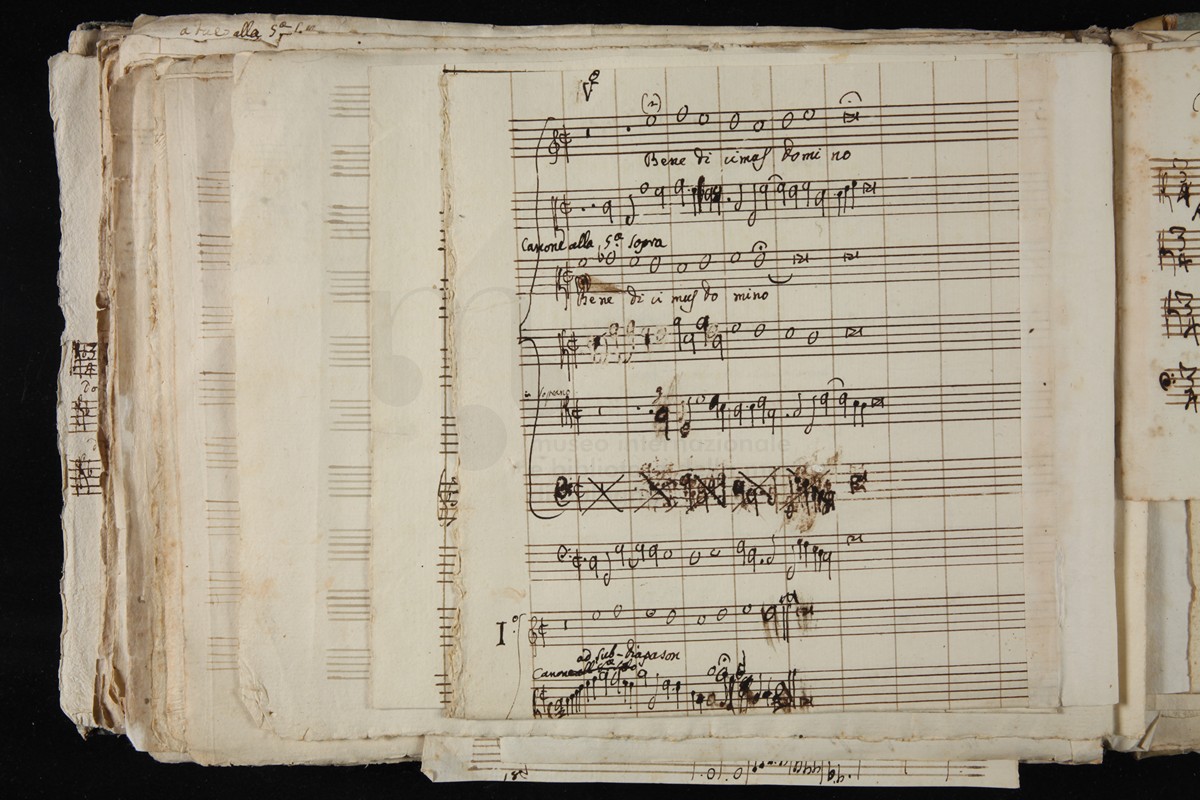 a due alla 5.a
Bene di cimus domi no
Canone alla 5.a Sopra
Bene di ci mus do mino
in Soprano
museo internazionale
I.o
ad sub-diapason
Canone